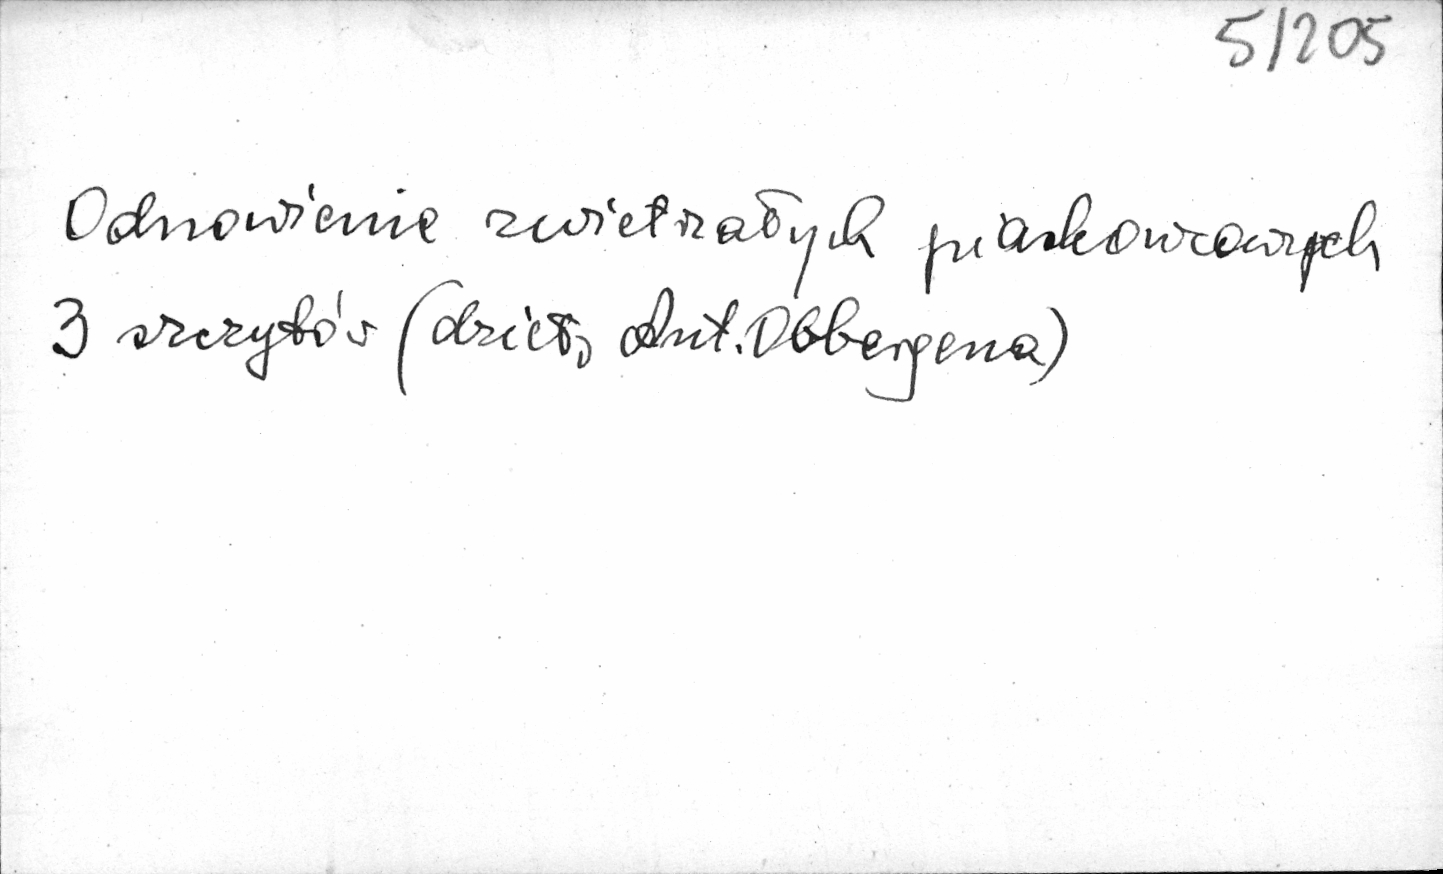 5/205
Odnowienie zwietrzałych piaskowcowych
3 szczytów (dzieło Ant. Obbergena)